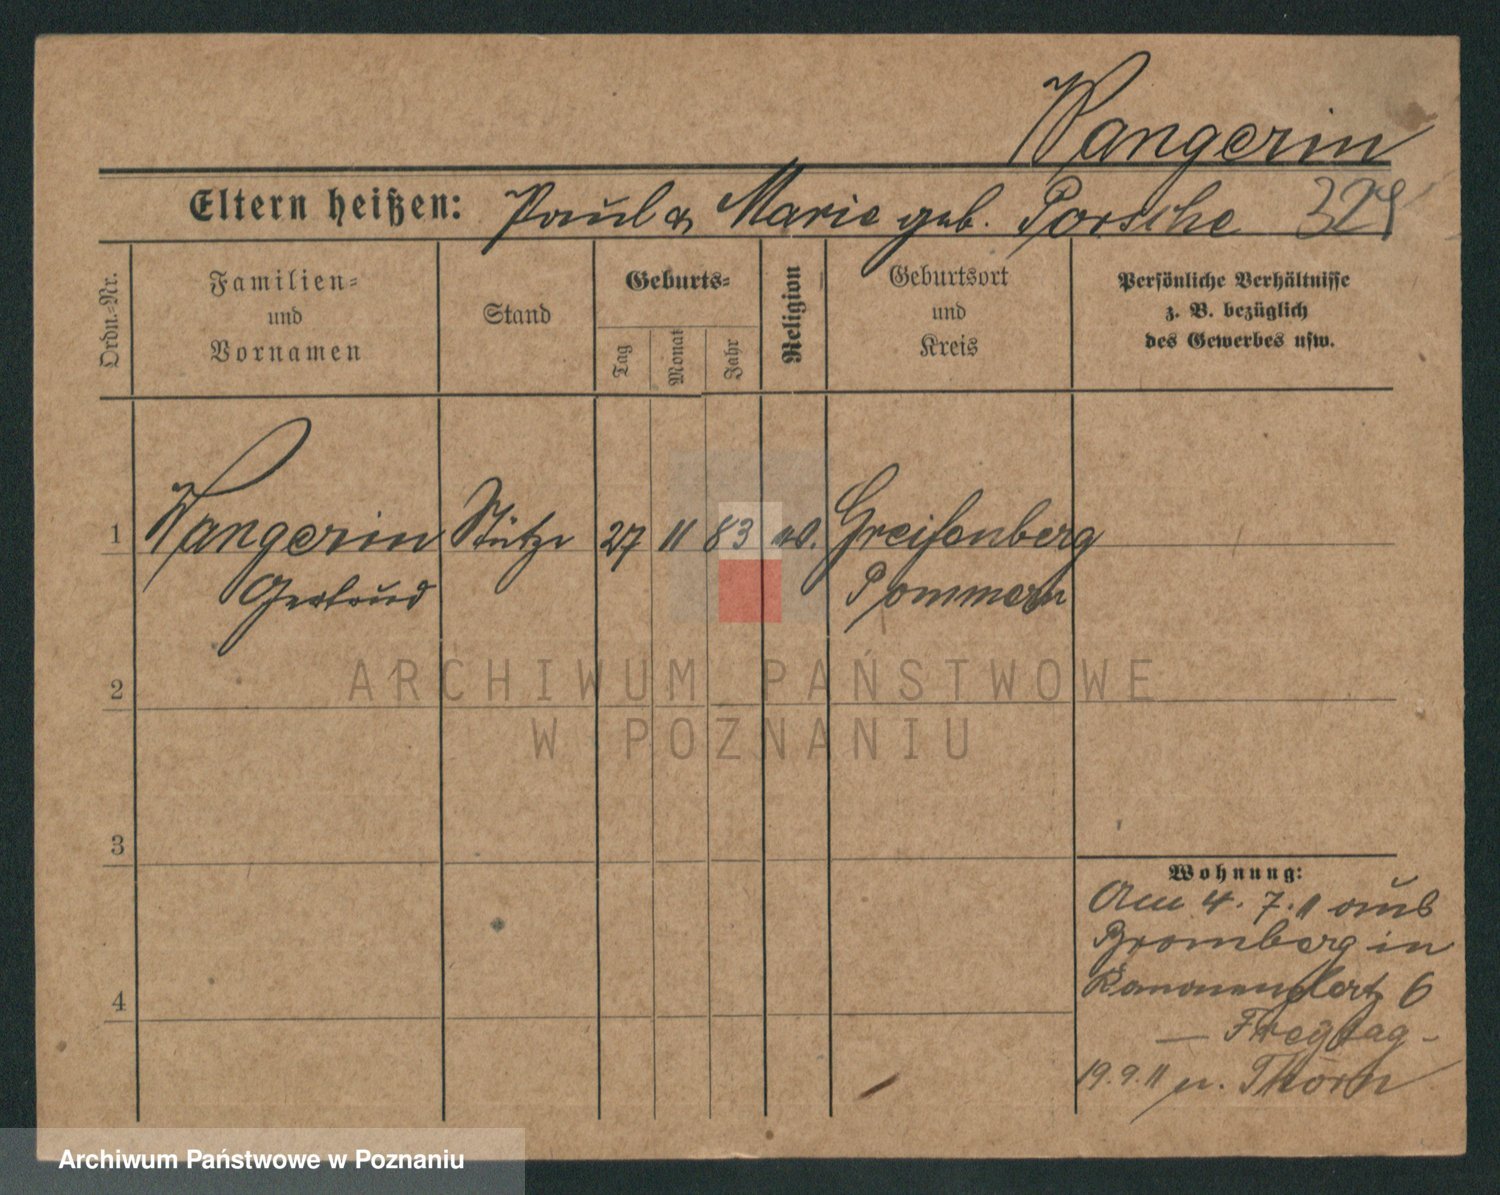 Wangerin
Eltern heißen: Paul & Marie geb. Porsche 329
Ordn.-Nr.
Familien-
und
Vornamen
Stand
Geburts-
Tag
Monat
Jahr
Religion
Geburtsort
und
Kreis
Persönliche Verhältnisse
z. B. bezüglich
des Gewerbes usw.
1 Wangerin Stütze 27 11 83 ev. Greifenberg
Gertrud Pommern
ARCHIWUM PAŃSTWOWE
W POZNANIU
2
3
4
Wohnung:
Am 4. 7. 11 aus
Bromberg in
Kanonenplatz 6
— Freytag -
19. 9. 11 n. Thorn
Archiwum Państwowe w Poznaniu